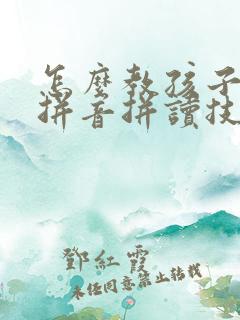 怎麼教孩子
拼音拼讀技
鄧紅霞
未經同意禁止轉載